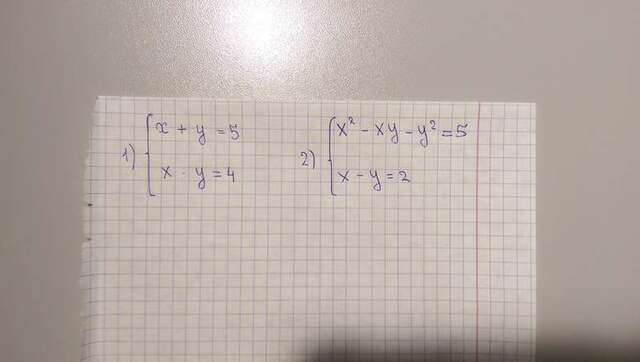 1) { x + y = 5
x · y = 4
2) { x² - xy - y² = 5
x - y = 2